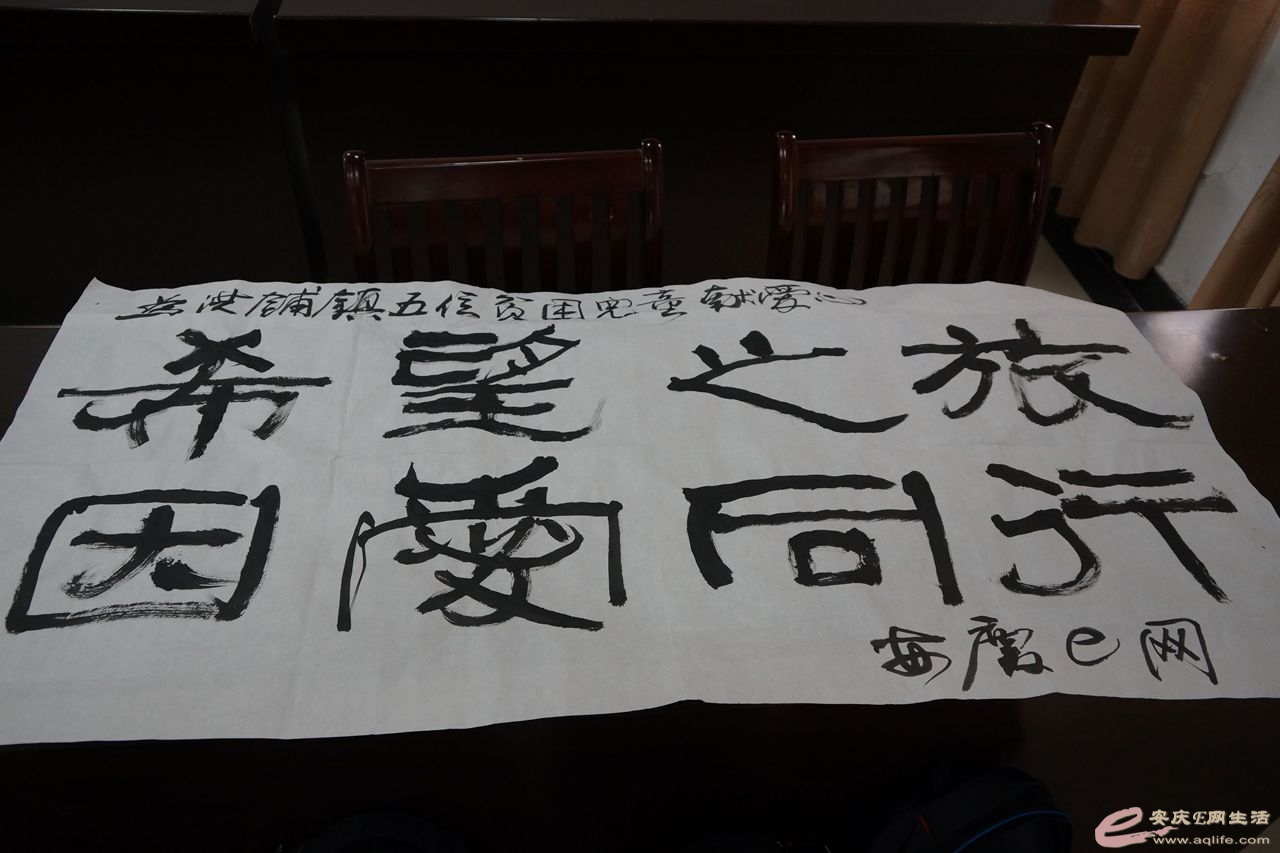 为洪铺镇五位贫困儿童献爱心
希望之旅
因愛同行
安慶e网
安庆E网生活
www.aqlife.com